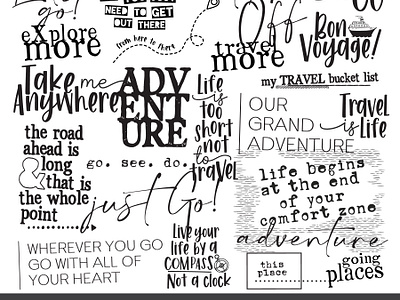 go!
NEED TO GET
OUT THERE
eXplore
more
from here to there
Off
travel
more
Bon
Voyage!
Take me
Anywhere
ADV
ENT
URE
Life
is
too
short
not
to
travel
my TRAVEL bucket list
OUR
GRAND
ADVENTURE
Travel
is life
the road
ahead is
long
& that is
the whole
point
go. see. do.
just Go!
life begins
at the end
of your
comfort zone
adventure
WHEREVER YOU GO
GO WITH ALL OF
YOUR HEART
Live your
life by a
COMPASS
Not a clock
this
place
going
places